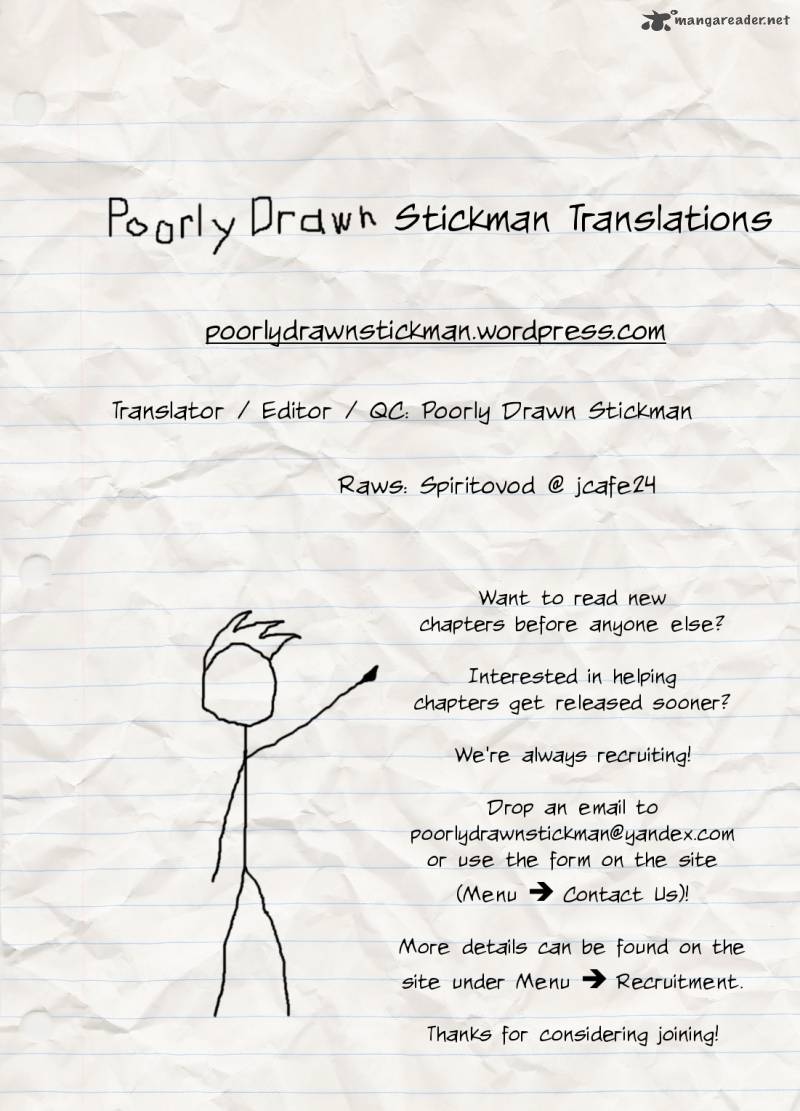 mangareader.net
Poorly Drawn Stickman Translations
poorlydrawnstickman.wordpress.com
Translator / Editor / QC: Poorly Drawn Stickman
Raws: Spiritovod @ jcafe24
Want to read new
chapters before anyone else?
Interested in helping
chapters get released sooner?
We're always recruiting!
Drop an email to
poorlydrawnstickman@yandex.com
or use the form on the site
(Menu ➔ Contact Us)!
More details can be found on the
site under Menu ➔ Recruitment.
Thanks for considering joining!